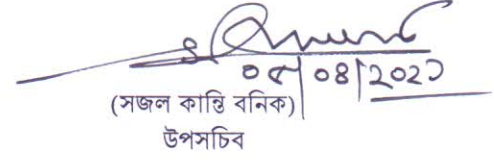 ০৫/০৪/২০২১
(সজল কান্তি বনিক)
উপসচিব